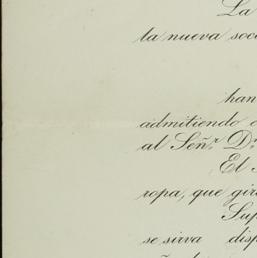 La
la nueva soc
han
admitiendo
al Señ.r D.
El
ropa, que gir
Sup
se sirva disp